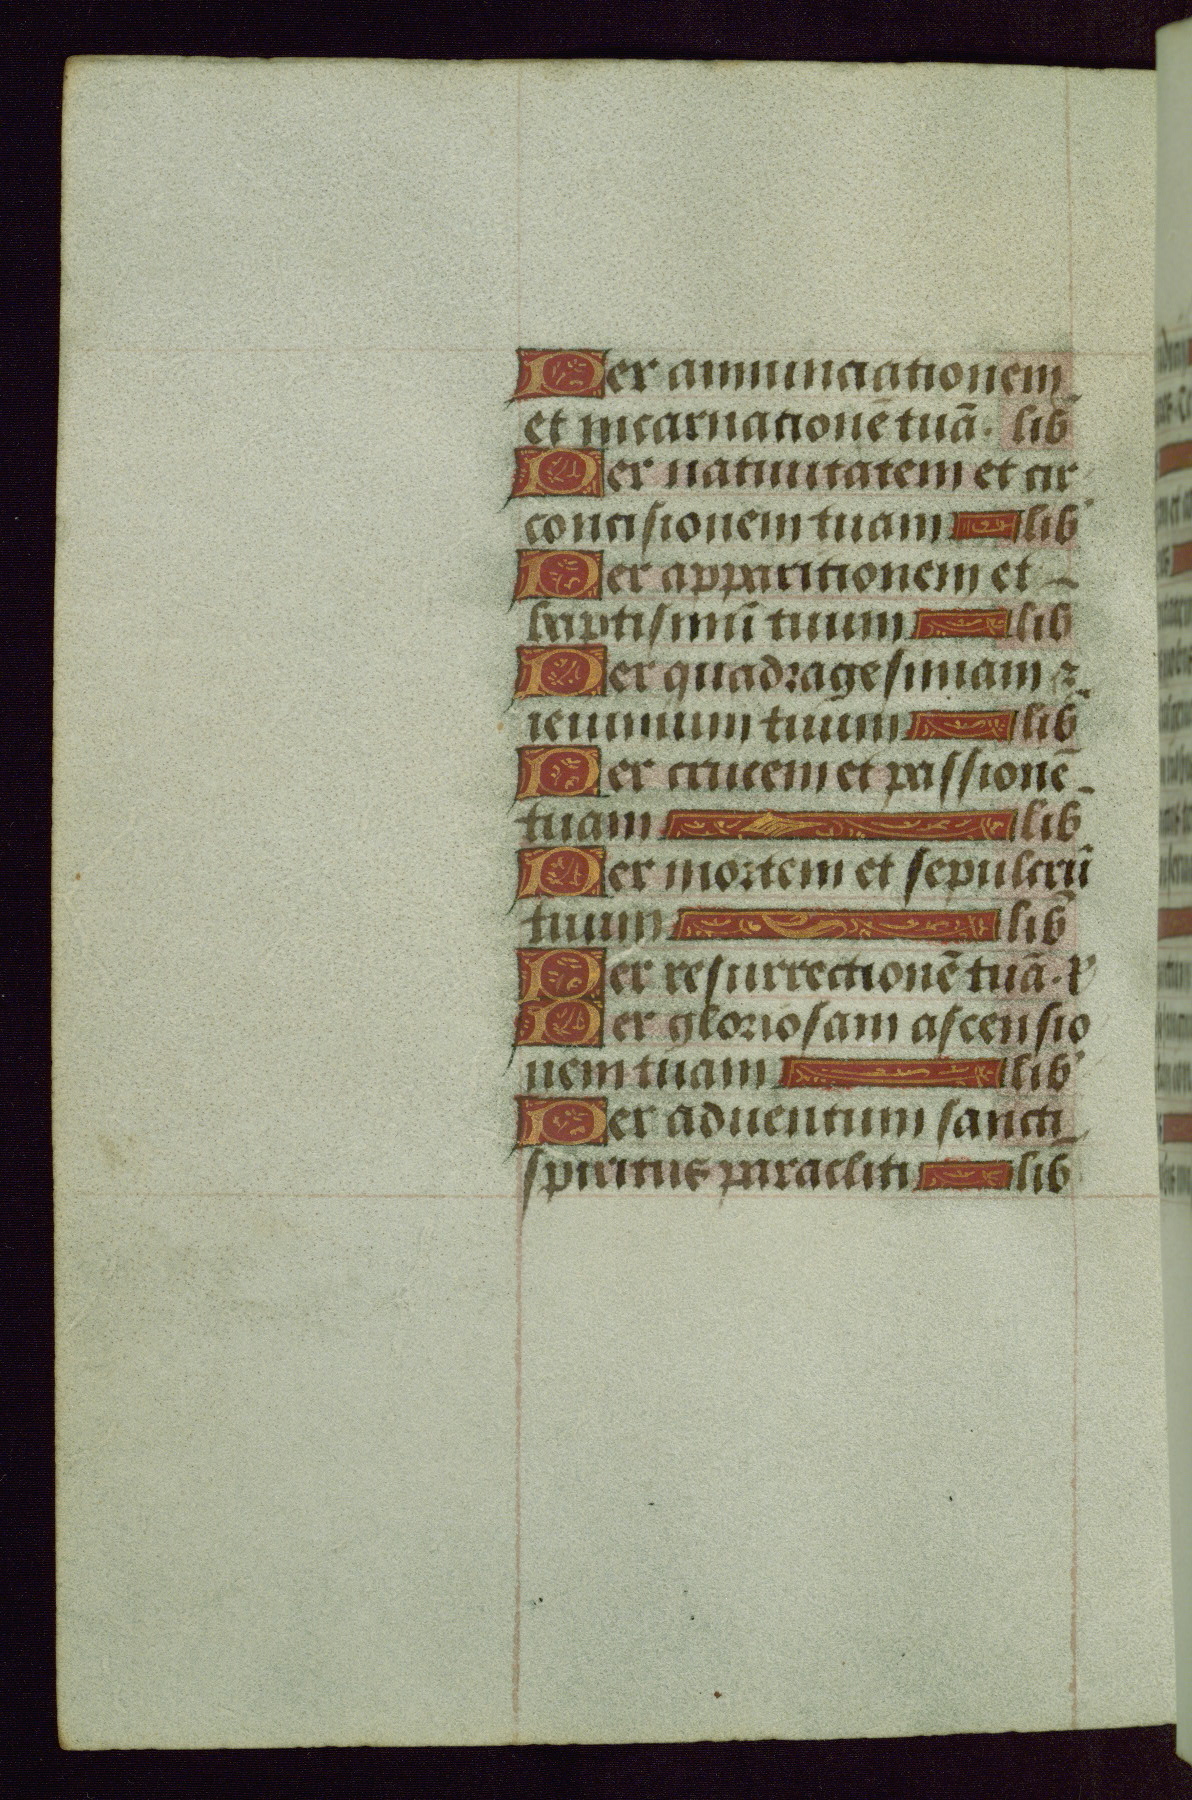 Per annunciationem
et incarnationē tuā. lib
Per natiuitatem et cir
concisionem tuam lib
Per apparitionem et
baptismū tuum lib
Per quadragesimam ⁊
ieiunium tuum lib
Per crucem et passionē
tuam lib
Per mortem et sepulcrū
tuum lib
Per resurrectionē tuā.
Per gloriosam ascensio
nem tuam lib
Per aduentum sancti
spiritus paracliti lib